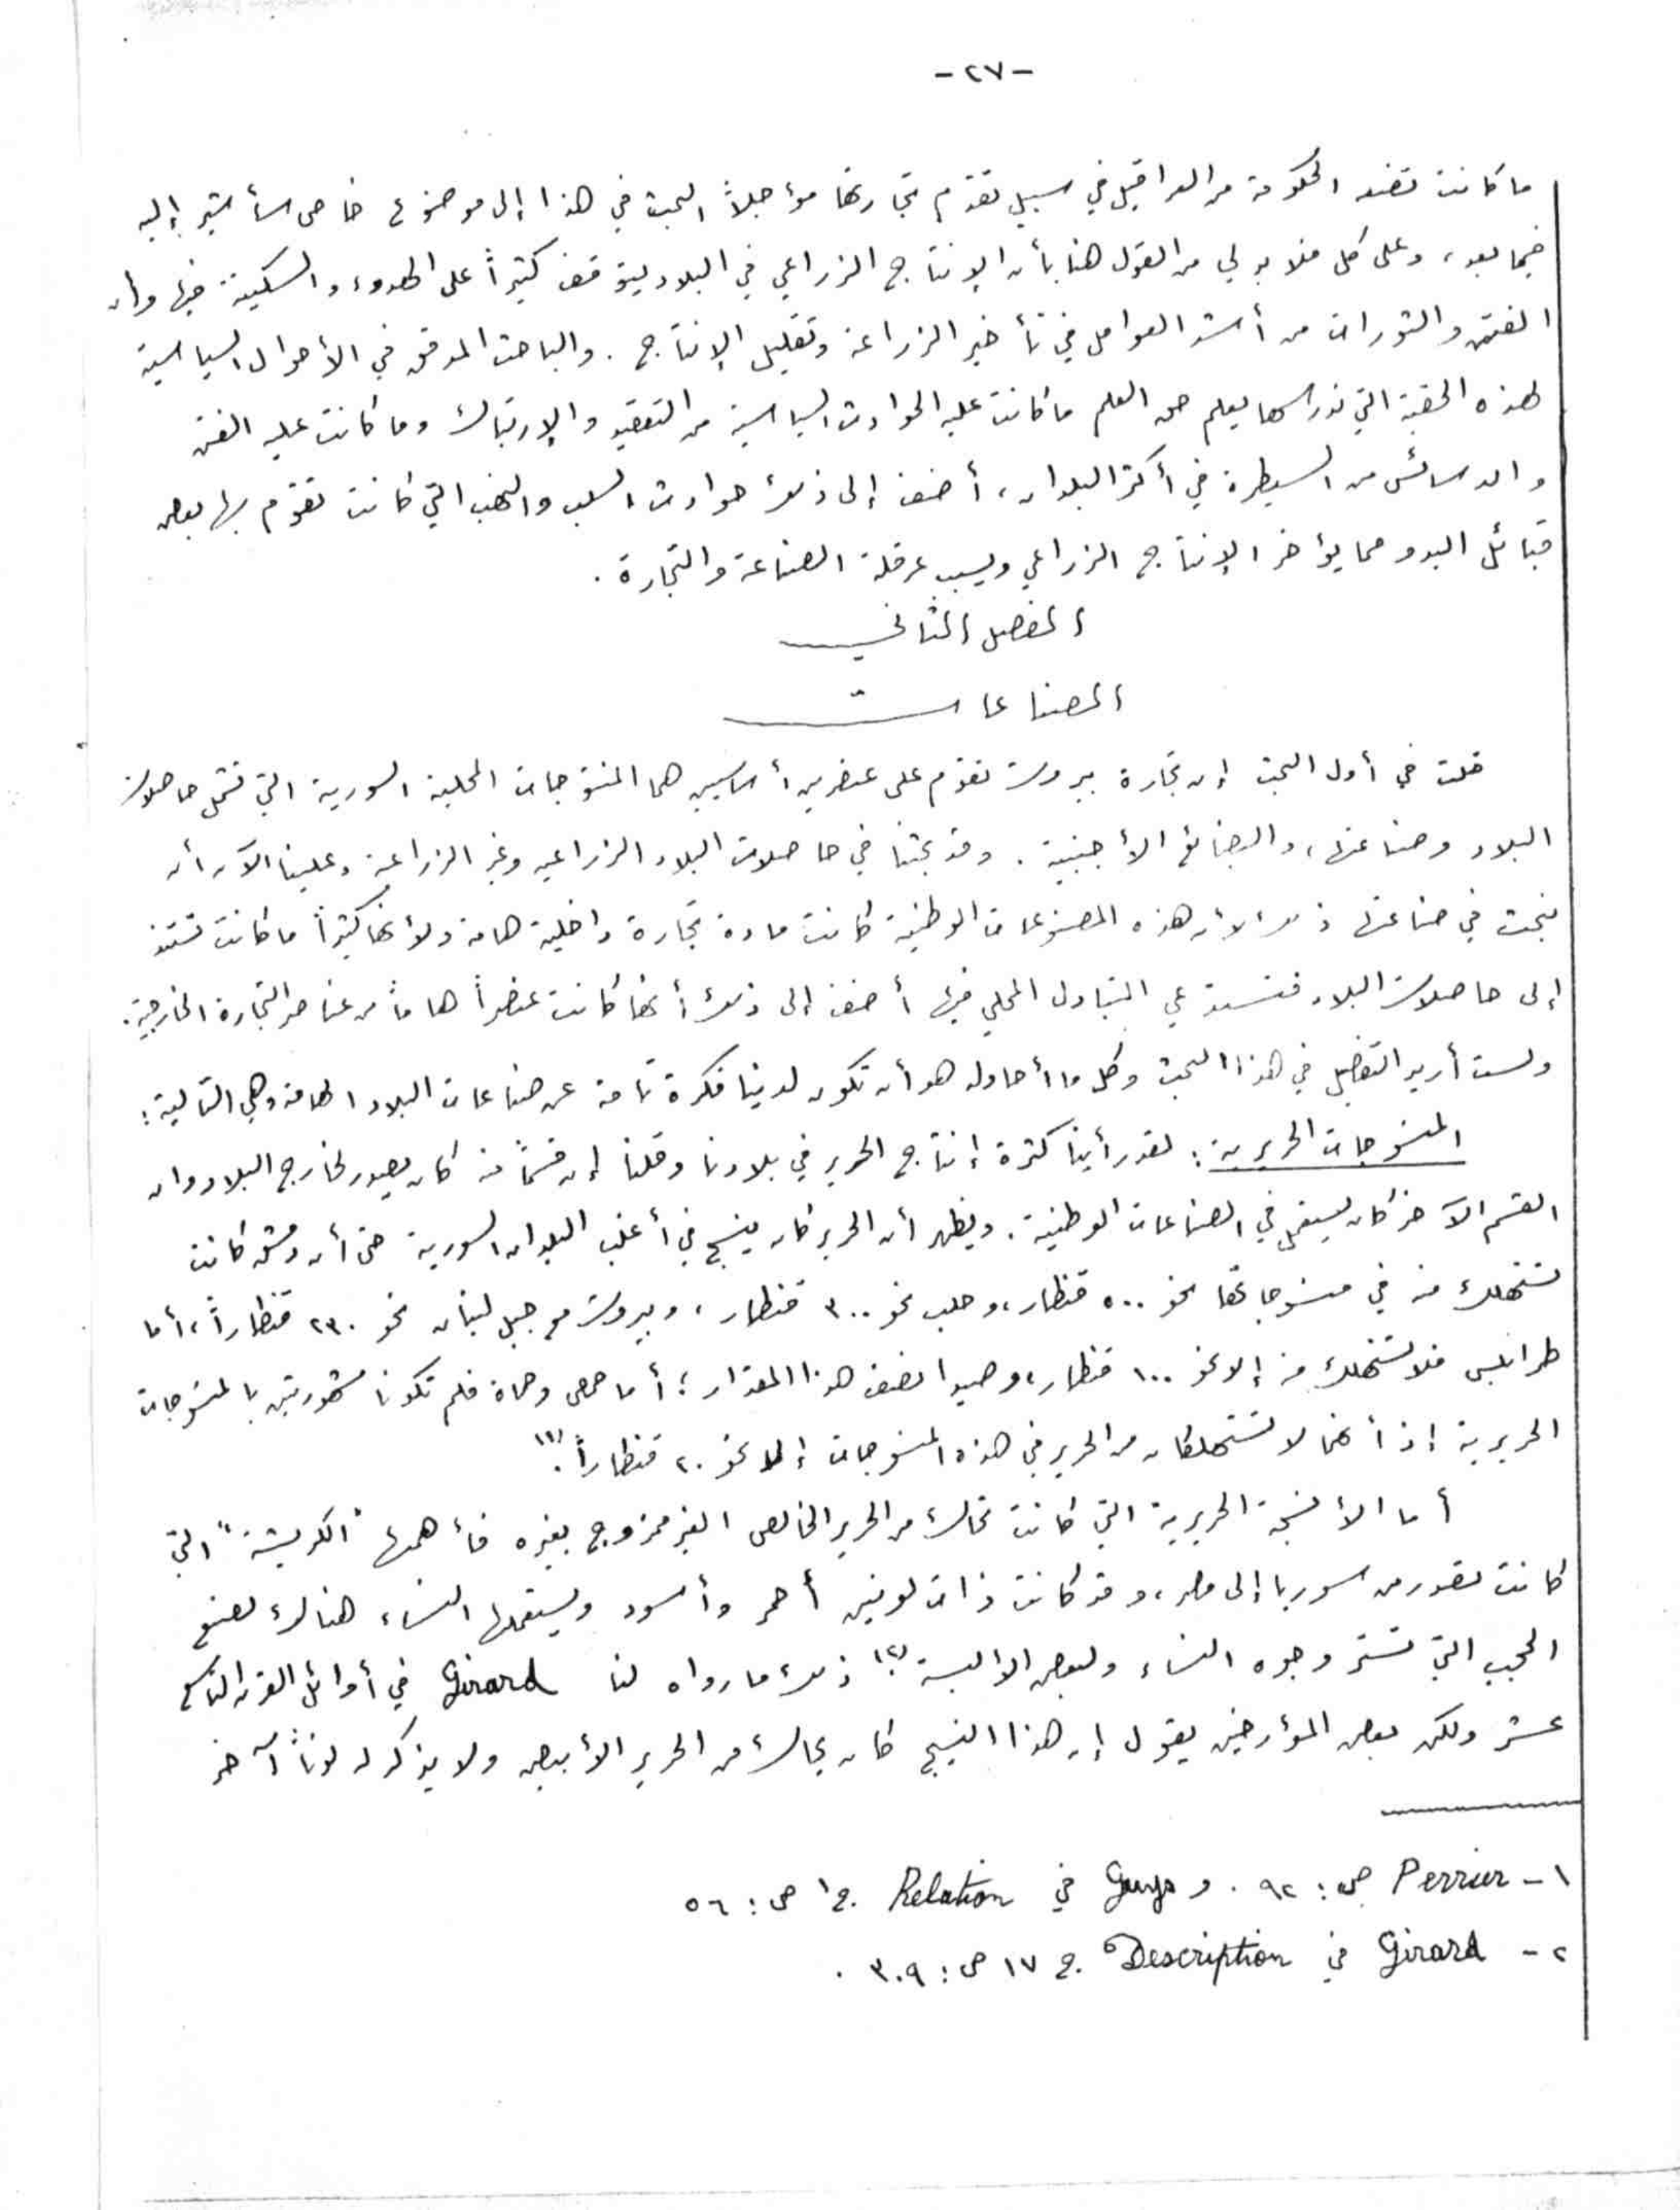 -٢٧-
ما كانت تضعه الحكومة من العراقيل في سبيل تقدم تجارتها مؤجلاً البحث في هذا إلى موضوع خاص سأشير إليه
فيما بعد، وعلى كل فلا بد لي من القول هنا بأن الإنتاج الزراعي في البلاد يتوقف كثيراً على الهدوء والسكينة فيها وأن
الفتن والثورات من أشد العوامل في تأخير الزراعة وتقليل الإنتاج. والباحث المدقق في الأحوال السياسية
لهذه الحقبة التي ندرسها يعلم حق العلم ما كانت عليه الحوادث السياسية من التعقيد والإرتباك وما كانت عليه الفتن
والدسائس من السيطرة في أكثر البلدان، أضف إلى ذلك حوادث السلب والنهب التي كانت تقوم بها بعض
قبائل البدو مما يؤخر الإنتاج الزراعي ويسبب عرقلة الصناعة والتجارة.
الفصل الثاني
الصناعات
قلت في أول البحث إن تجارة بيروت تقوم على عنصرين أساسيين هما المنتوجات المحلية السورية التي تشمل حاصلات
البلاد وصناعتها، والبضائع الأجنبية. وقد بحثنا في حاصلات البلاد الزراعيه وغير الزراعية وعلينا الآن أن
نبحث في صناعتها ذلك لأن هذه المصنوعات الوطنية كانت مادة تجارة داخلية هامة ولأنها كثيراً ما كانت تستند
إلى حاصلات البلاد فتستدعي التبادل المحلي فيها أضف إلى ذلك أنها كانت عنصراً هاماً من عناصر التجارة الخارجية.
ولست أريد التفصيل في هذا البحث وكل ما أحاوله هو أن تكون لدينا فكرة تامة عن صناعات البلاد الهامة وهي التالية:
المنسوجات الحريرية: لقد رأينا كثرة إنتاج الحرير في بلادنا وقلنا إن قسماً منه كان يصدر لخارج البلاد وان
القسم الآخر كان يستعمل في الصناعات الوطنية. ويظهر أن الحرير كان ينسج في أغلب البلدان السورية حتى أن دمشق كانت
تستهلك منه في منسوجاتها نحو ٥٠٠ قنطار، وحلب نحو ٣٠٠ قنطار، وبيروت مع جبل لبنان نحو ٢٣٠ قنطاراً، أما
طرابلس فلا تستهلك منه إلا نحو ١٠٠ قنطار، وصيدا نصف هذا المقدار؛ أما حمص وحماة فلم تكونا مشهورتين بالمنسوجات
الحريرية إذ أنهما لا تستهلكان من الحرير في هذه المنسوجات إلا نحو ٢٠ قنطاراً.(١)
أما الأنسجة الحريرية التي كانت تحاك من الحرير الخالص الغير ممزوج بغيره فأهمها "الكريشة" التي
كانت تصدر من سوريا إلى مصر، وقد كانت ذات لونين أحمر وأسود ويستعملها النساء هناك لصنع
الحجب التي تستر وجوه النساء ولبعض الالبسة(٢) ذلك ما رواه لنا Girard في أوائل القرن التاسع
عشر ولكن بعض المؤرخين يقول إن هذا النسيج كان يحاك من الحرير الأبيض ولا يذكر له لوناً آخر
١ - Perrier ص: ٩٢. و Guys في Relation ج ١ ص: ٥٦
٢ - Girard في Description ج ١٧ ص: ٣٠٩.